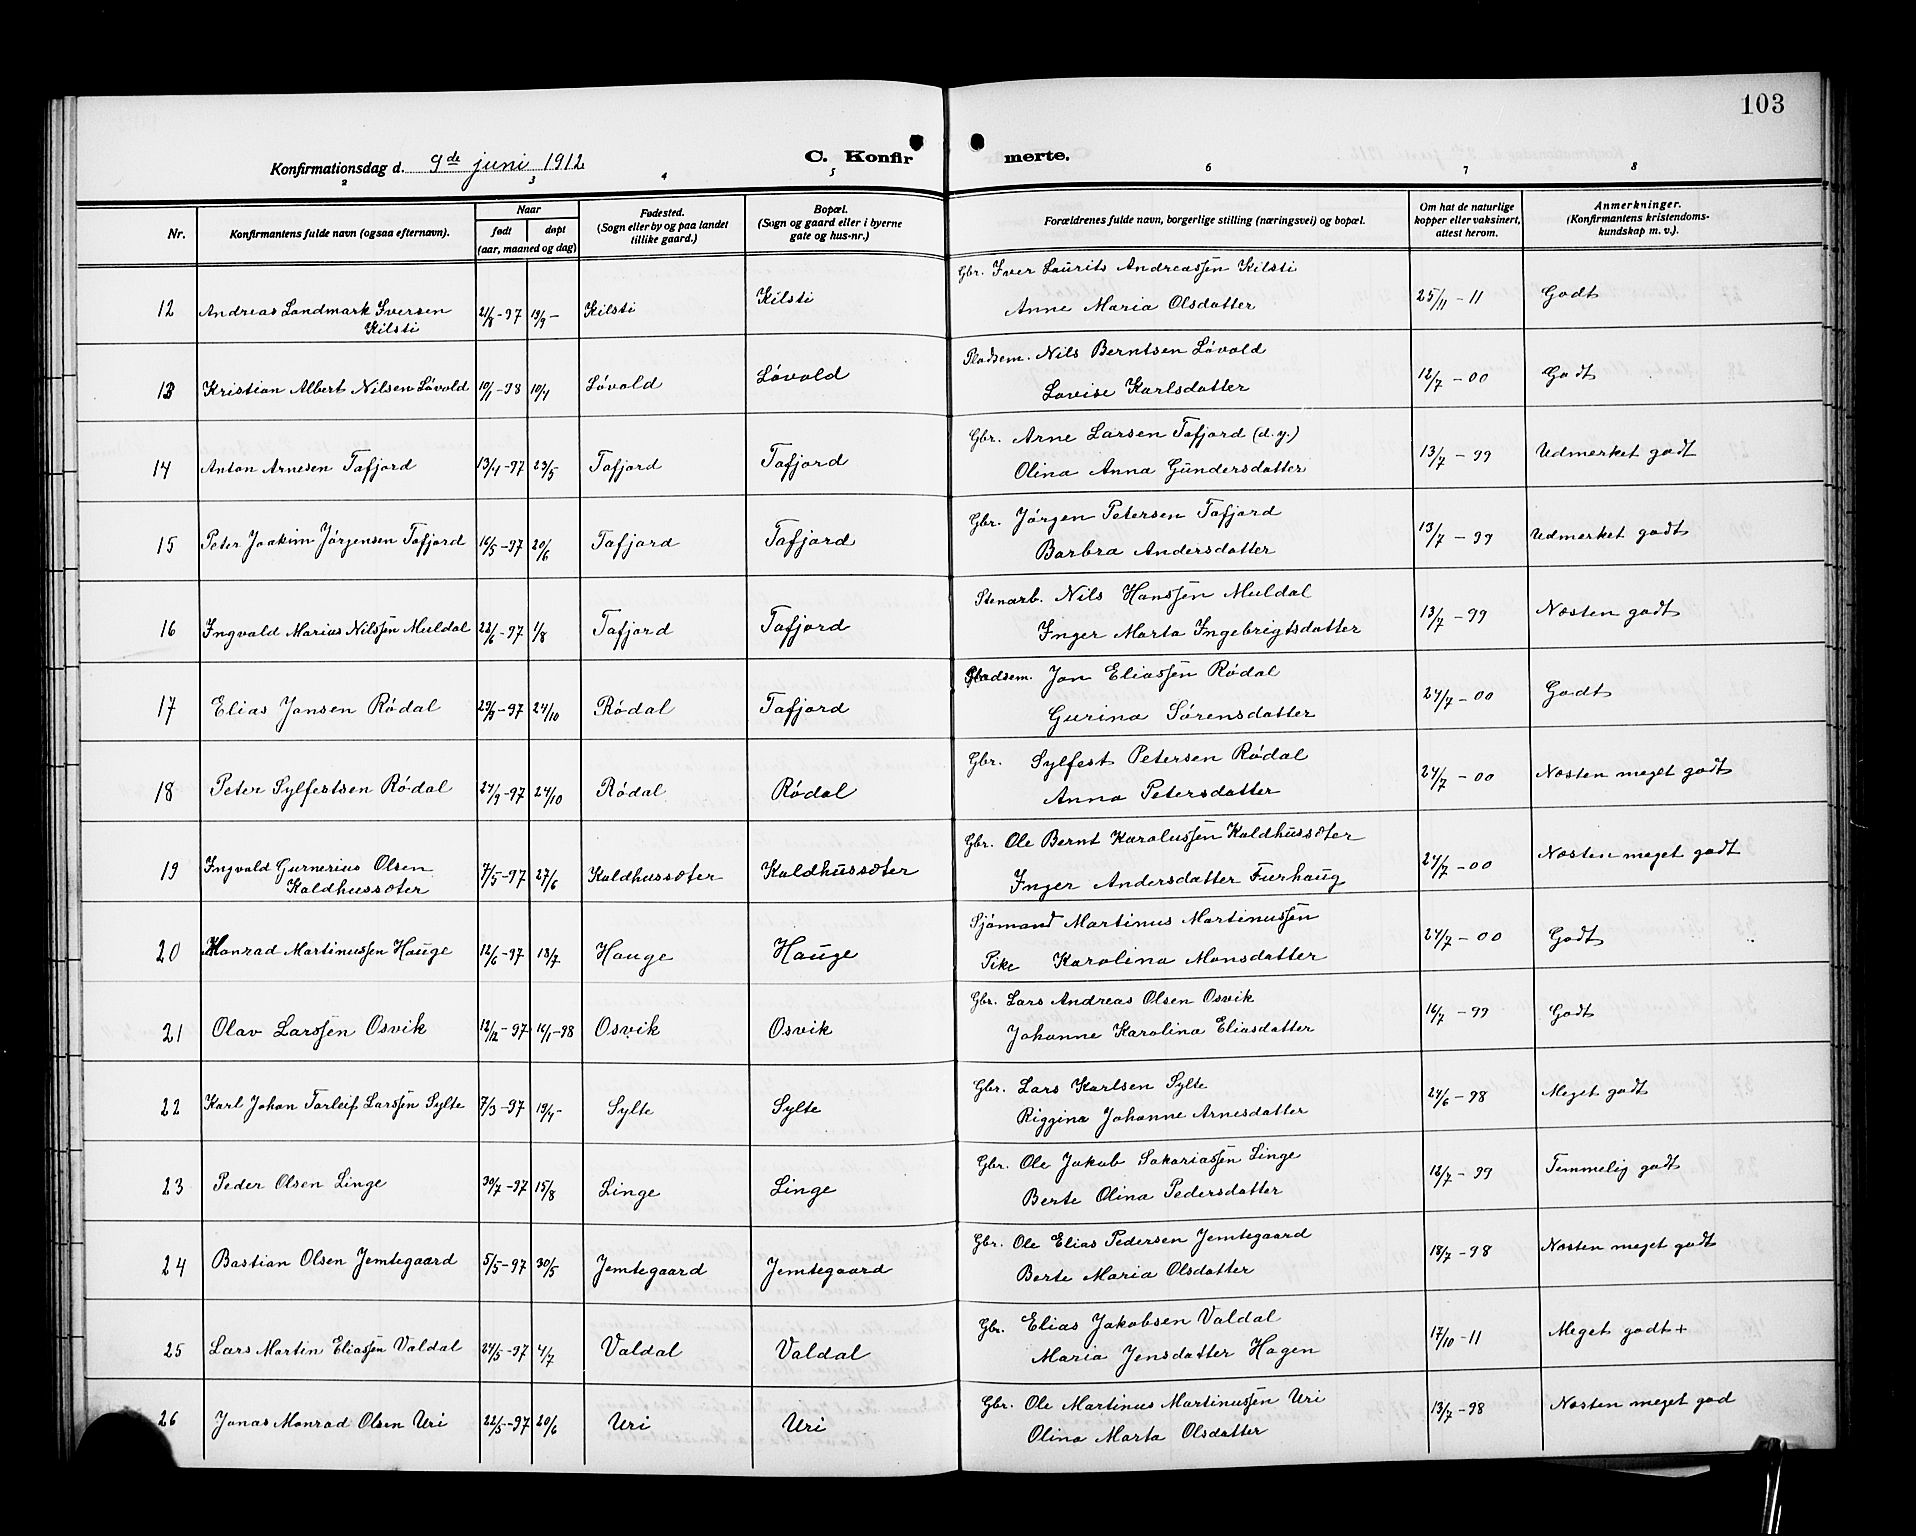 103
Konfirmationsdag d. 9de juni 1912
C. Konfirmerte.
2 3 4 5 6 7 8
Nr.
Konfirmantens fulde navn (ogsaa efternavn).
Naar
født
døpt
(aar, maaned og dag)
Fødested.
(Sogn eller by og paa landet
tillike gaard.)
Bopæl.
(Sogn og gaard eller i byerne
gate og hus-nr.)
Forældrenes fulde navn, borgerlige stilling (næringsvei) og bopæl.
Om hat de naturlige
kopper eller vaksinert,
attest herom.
Anmerkninger.
(Konfirmantens kristendoms-
kundskap m. v.).
Gbr. Iver Laurits Andreassen Kilsti
12 Andreas Landmark Iversen 21/8-97 19/9- Kilsti Kilsti Anne Maria Olsdatter 25/11-11 Godt
Kilsti
Pladsem. Nils Berntsen Løvold
13 Kristian Albert Nilsen Løvold 10/1-98 10/4 Løvold Løvold Lovise Karlsdatter 12/7-00 Godt
Gbr. Arne Larsen Tafjord (d.y.)
14 Anton Arnesen Tafjord 13/4-97 23/5 Tafjord Tafjord Olina Anna Gundersdatter 13/7-99 Udmerket godt
Gbr. Jørgen Petersen Tafjord
15 Peter Joakim Jørgensen Tafjord 16/5-97 20/6 Tafjord Tafjord Barbra Andersdatter 13/7-99 Udmerket godt
Stenarb. Nils Hanssen Muldal
16 Ingvald Marius Nilssen Muldal 22/6-97 1/8 Tafjord Tafjord Inger Marta Ingebrigtsdatter 13/7-99 Næsten godt
Pladsem. Jon Eliassen Rødal
17 Elias Jonsen Rødal 29/9-97 24/10 Rødal Tafjord Gurina Sørensdatter 24/7-00 Godt
Gbr. Sylfest Petersen Rødal
18 Peter Sylfestsen Rødal 24/9-97 24/10 Rødal Rødal Anna Petersdatter 24/7-00 Næsten meget godt
Gbr. Ole Bernt Karolussen Kaldhussæter
19 Ingvald Gurnerius Olsen 7/5-97 27/6 Kaldhussæter Kaldhussæter Inger Andersdatter Furhaug 24/7-00 Næsten meget godt
Kaldhussæter
Sjømand Martinus Martinussen
20 Konrad Martinussen Hauge 12/6-97 18/7 Hauge Hauge Pike Karolina Monsdatter 24/7-00 Godt
Gbr. Lars Andreas Olsen Osvik
21 Olav Larssen Osvik 12/12-97 16/1-98 Osvik Osvik Johanne Karolina Eliasdatter 16/7-99 Godt
Gbr. Lars Karlsen Sylte
22 Karl Johan Torleif Larssen Sylte 7/3-97 19/4- Sylte Sylte Riggina Johanne Arnesdatter 24/6-98 Meget godt
Gbr. Ole Jakob Sakariassen Linge
23 Peder Olsen Linge 30/7-97 15/8 Linge Linge Berte Olina Pedersdatter 12/7-99 Temmelig godt
Gbr. Ole Elias Pedersen Jemtegaard
24 Bastian Olsen Jemtegaard 5/5-97 30/5 Jemtegaard Jemtegaard Berte Maria Olsdatter 18/7-98 Næsten meget godt
Gbr. Elias Jakobsen Valdal
25 Lars Martin Eliassen Valdal 24/5-97 4/7 Valdal Valdal Maria Jensdatter Hagen 17/10-11 Meget godt +
Gbr. Ole Martinus Martinussen Uri
26 Jonas Monrad Olsen Uri 22/5-97 20/6 Uri Uri Olina Marta Olsdatter 13/7-98 Næsten meget god